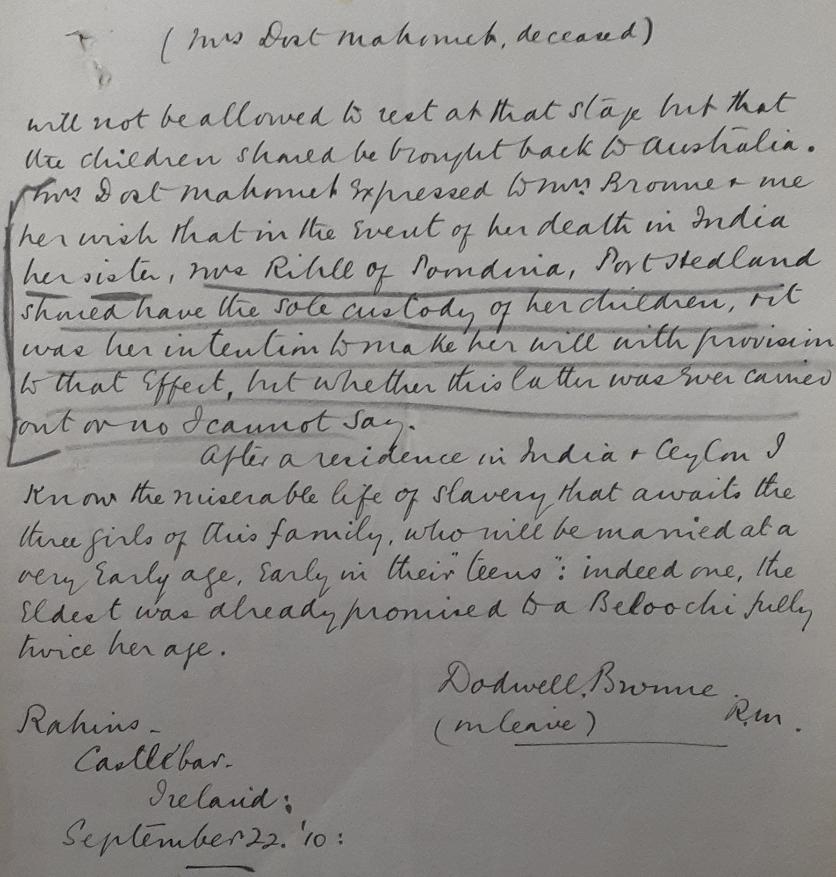 (Mrs Dost Mahomet, deceased)
will not be allowed to rest at that stage but that
the children should be brought back to Australia.
Mrs Dost Mahomet Expressed to Mrs Browne & me
her wish that in the Event of her death in India
her sister, Mrs Rihll of Poondina, Port Hedland
should have the sole custody of her children, & it
was her intention to make her will with provision
to that Effect, but whether this latter was Ever carried
out or no I cannot say.
After a residence in India & Ceylon I
Know the miserable life of slavery that awaits the
three girls of this family, who will be married at a
very Early age, Early in their "teens": indeed one, the
Eldest was already promised to a Beloochi fully
twice her age.
Dodwell Browne
R.M.
(on leave)
Rahins -
Castlebar -
Ireland:
September 22. '10: